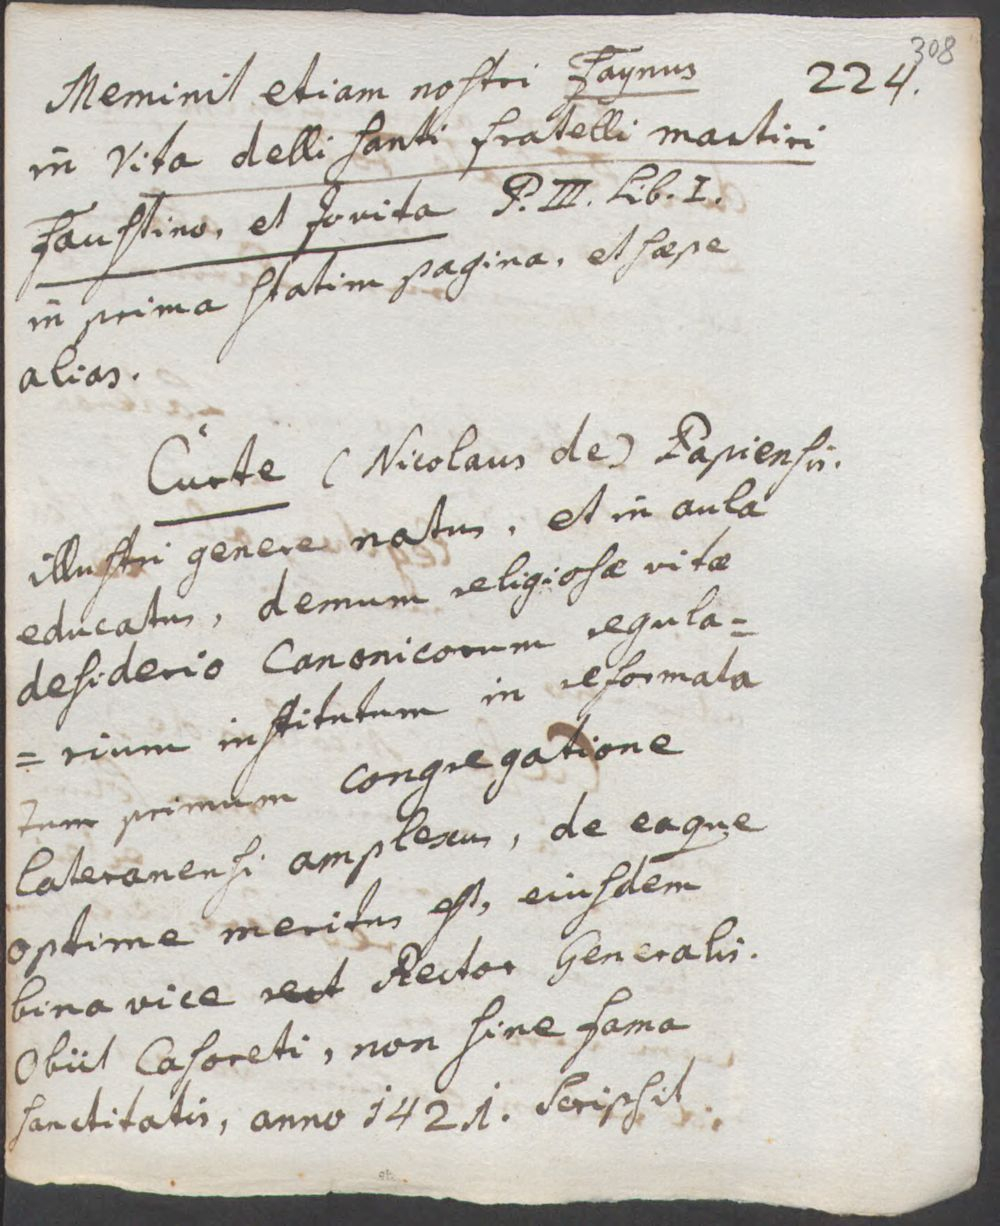 308
Meminit etiam nostri Faynus 224.
in Vita delli santi fratelli martiri
Faustino, et Jovita P. III. Lib. I.
in prima statim pagina, et sæpe
alias.
Curte (Nicolaus de) Papiensis.
illustri genere natus, et in aula
educatus, demum religiosæ vitæ
desiderio Canonicorum regula=
=rium institutum in reformata
tum primum congregatione
lateranensi amplexus, de eaque
optime meritus est, eiusdem
bina vice Rector Generalis.
Obiit Casoreti, non sine fama
sanctitatis, anno 1421. Scripsit